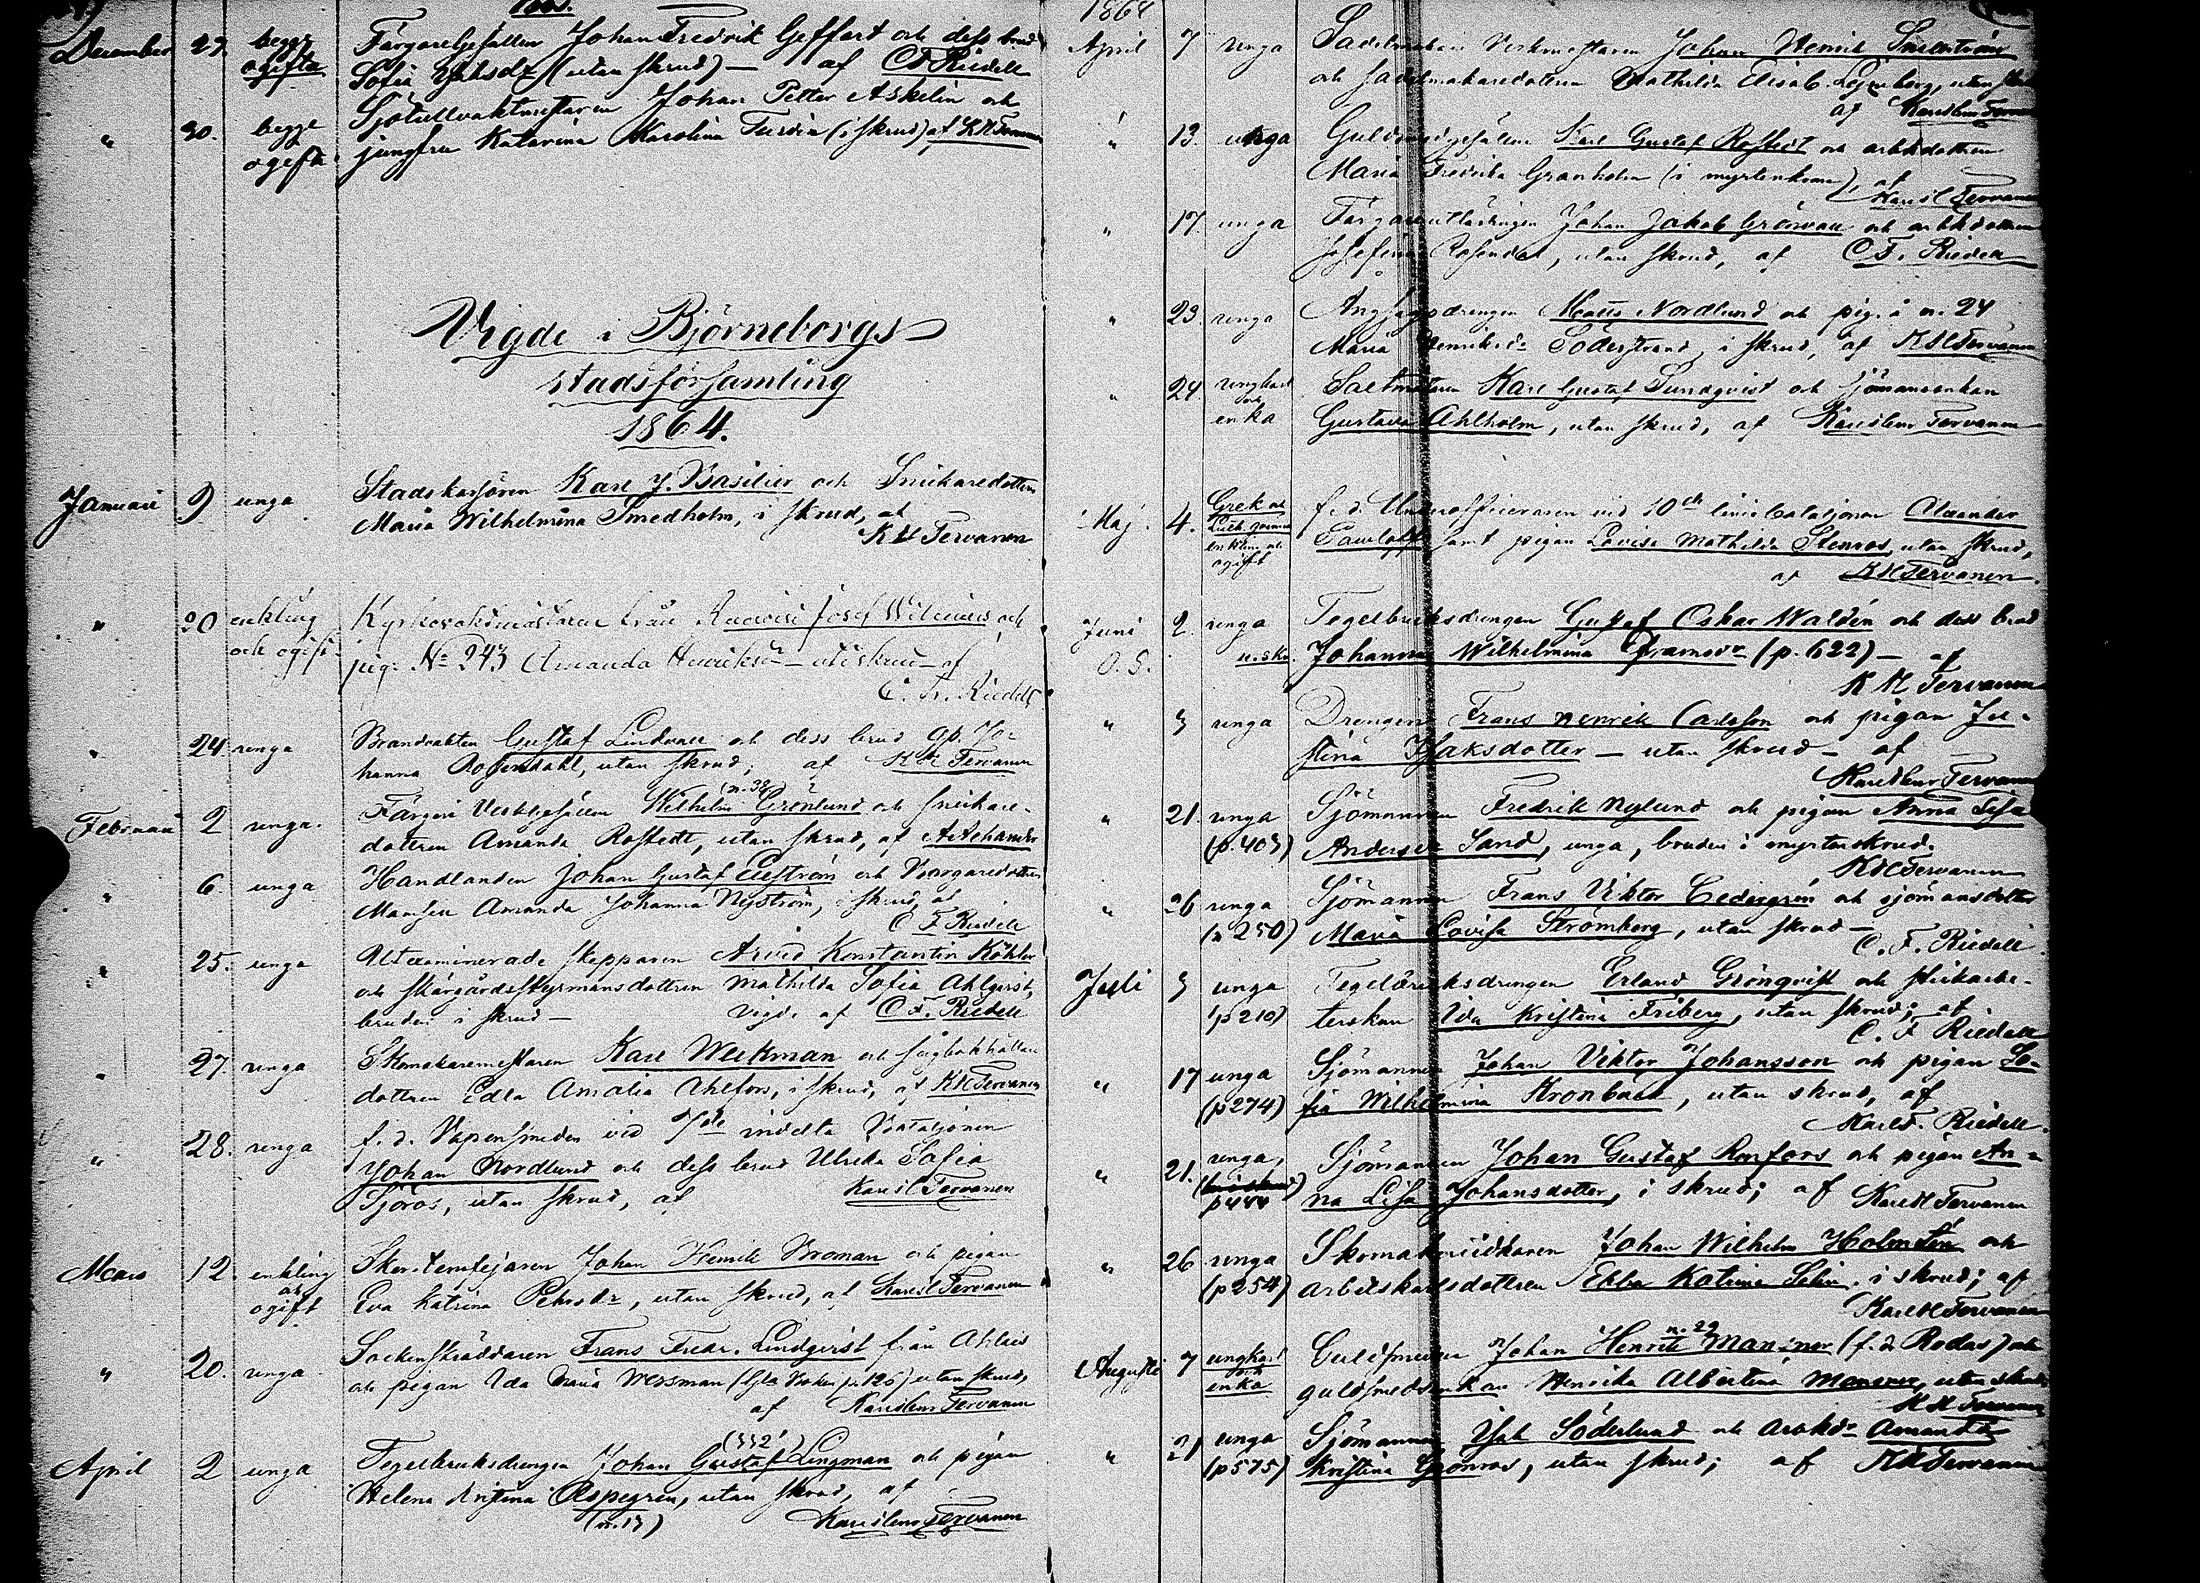 1863.
December 27. begge ogifta Färgaregesällen Johan Fredrik Geffert och dess brud
Sofia Isaksdr (utan skrud) — af C F Riedell
" 30. begge ogifta Sjötullvaktmästaren Johan Petter Askelin och
jungfru Katarina Karolina (i skrud) af K H Tervanen
Vigde i Björneborgs
stadsförsamling
1864.
Januari 9 unga Stadskassören Karl J. Basilier och Snickaredottern
Maria Wilhelmina Smedholm, i skrud, af
K H Tervanen
" 20 enkling och ogift Josef Wilenius och
pig. No 243 Amanda Henriksdr — utan skrud — af
C. Fr. Riedell
" 24 unga Brandvakten Gustaf Lindvall och dess brud Jo-
hanna Rosendahl, utan skrud; af K H Tervanen
(n. 38)
Februari 2 unga. Färgeri Wilhelm Grönlund och snickare-
dottren Amanda Rostedt, utan skrud, af
" 6. unga Handlanden Johan Gustaf och Borgaredottren
Mamsell Amanda Johanna Nyström, i skrud, af
C F Riedell
" 25. unga Utexaminerade skepparen Arvid Konstantin Köhler
och skärgårdsstyrmansdottren Mathilda Sofia Ahlqvist,
bruden i skrud — vigd. af C. F. Riedell
" 27. unga Skomakaremästaren Karl Weckman och
dottren Edla Amalia Ahlfors, i skrud, af K H Tervanen
" 28. unga f. d. Vapensmeden vid 7de indelta Bataljonen
Johan Nordlund och dess brud Ulrika Sofia
Sjöros, utan skrud, af Karl H Tervanen
Mars 12. enkling och ogift Skorstensfejaren Johan Henrik Broman och pigan
Eva Katrina Pehrsdr, utan skrud, af Karl H Tervanen
" 20. unga Sockenskräddaren Frans Fredr. Lindqvist från Ahlais
och pigan Ida Maria Wessman (p. 126) utan skrud,
af Karl Hnr Tervanen
(332)
April 2 unga Tegelbruksdrengen Johan Gustaf Lingman och pigan
Helena Kristina Aspegren, utan skrud, af
(n. 13) Karl Hnr Tervanen
1864
April 7 unga Sadelmakare Verkmästaren Johan Henrik
och sadelmakaredottren Mathilda Elisab. utan skrud
af Karl Hnr Tervanen
" 13. unga Guldsmedgesällen Karl Gustaf Rostedt och arbkdottren
Maria Fredrika Granholm (i myrtenkrona), af
Karl H Tervanen
" 17. unga Färgareutlärlingen Johan Jakob Grönvall och arbkdottren
Josefina Rosendal, utan skrud, af C F. Riedell
" 23. unga Ångsågsdrengen Matts Nordlund och pig. å n. 24
Maria Henriksdr Söderstrand, i skrud, af K H Tervanen
" 24 ungkarl och enka Karl Gustaf Sundqvist och sjömansenkan
Gustava Ahlholm, utan skrud, af Karl Hnr Tervanen
Maj 4. Grek och Luth. enkling och ogift f. d. Underofficeraren vid 10de liniebataljonen Alexander
samt pigan Lovisa Mathilda Stenros, utan skrud,
af K H Tervanen.
Juni 2. unga Tegelbruksdrengen Gustaf Oskar Waldén och dess brud
O. S. u. skr. Johanna Wilhelmina Framsdr (p. 622) — af
K H Tervanen
" 3 unga Drengen Frans Henrik Carlsson och pigan Ju-
stina Isaksdotter — utan skrud — af
Karl Hnr Tervanen
" 21. unga Sjömannen Fredrik Nylund och pigan Anna Lisa
(p. 403) Andersdr Sand, unga, bruden i myrtenskrud.
K H Tervanen
" 26 unga Sjömannen Frans Viktor Cedergrén och sjömansdotter
(p 250) Maria Lovisa Strömberg, utan skrud —
C. F. Riedell
Juli 3 unga Tegelbruksdrengen Erland Grönqvist och stickarbe-
(p 210) terskan Ida Kristina Friberg, utan skrud; af
C. F Riedell
" 17 unga Sjömannen Johan Viktor Johansson och pigan So-
(p 274) fia Wilhelmina Kronback, utan skrud, af
Karl F. Riedell.
" 21. unga, Sjömannen Johan Gustaf Renfors och pigan An-
p 444 na Lisa Johansdotter, i skrud; af Karl H Tervanen
" 26 unga Johan Wilhelm Holmlén och
(p 254) arbetskarlsdottren Ebba Katrina Selin. i skrud; af
Karl H Tervanen
n. 29
Augusti 7 ungkarl och enka Guldsmeden Johan Henrik (f. d. Rodas) och
guldsmedsenkan Henrika Albertina utan skrud
K H Tervanen
" 21 unga Sjömannen Isak Söderlund och arbkdr Amanda
(p 575) Kristina Grönros, utan skrud; af K H Tervanen